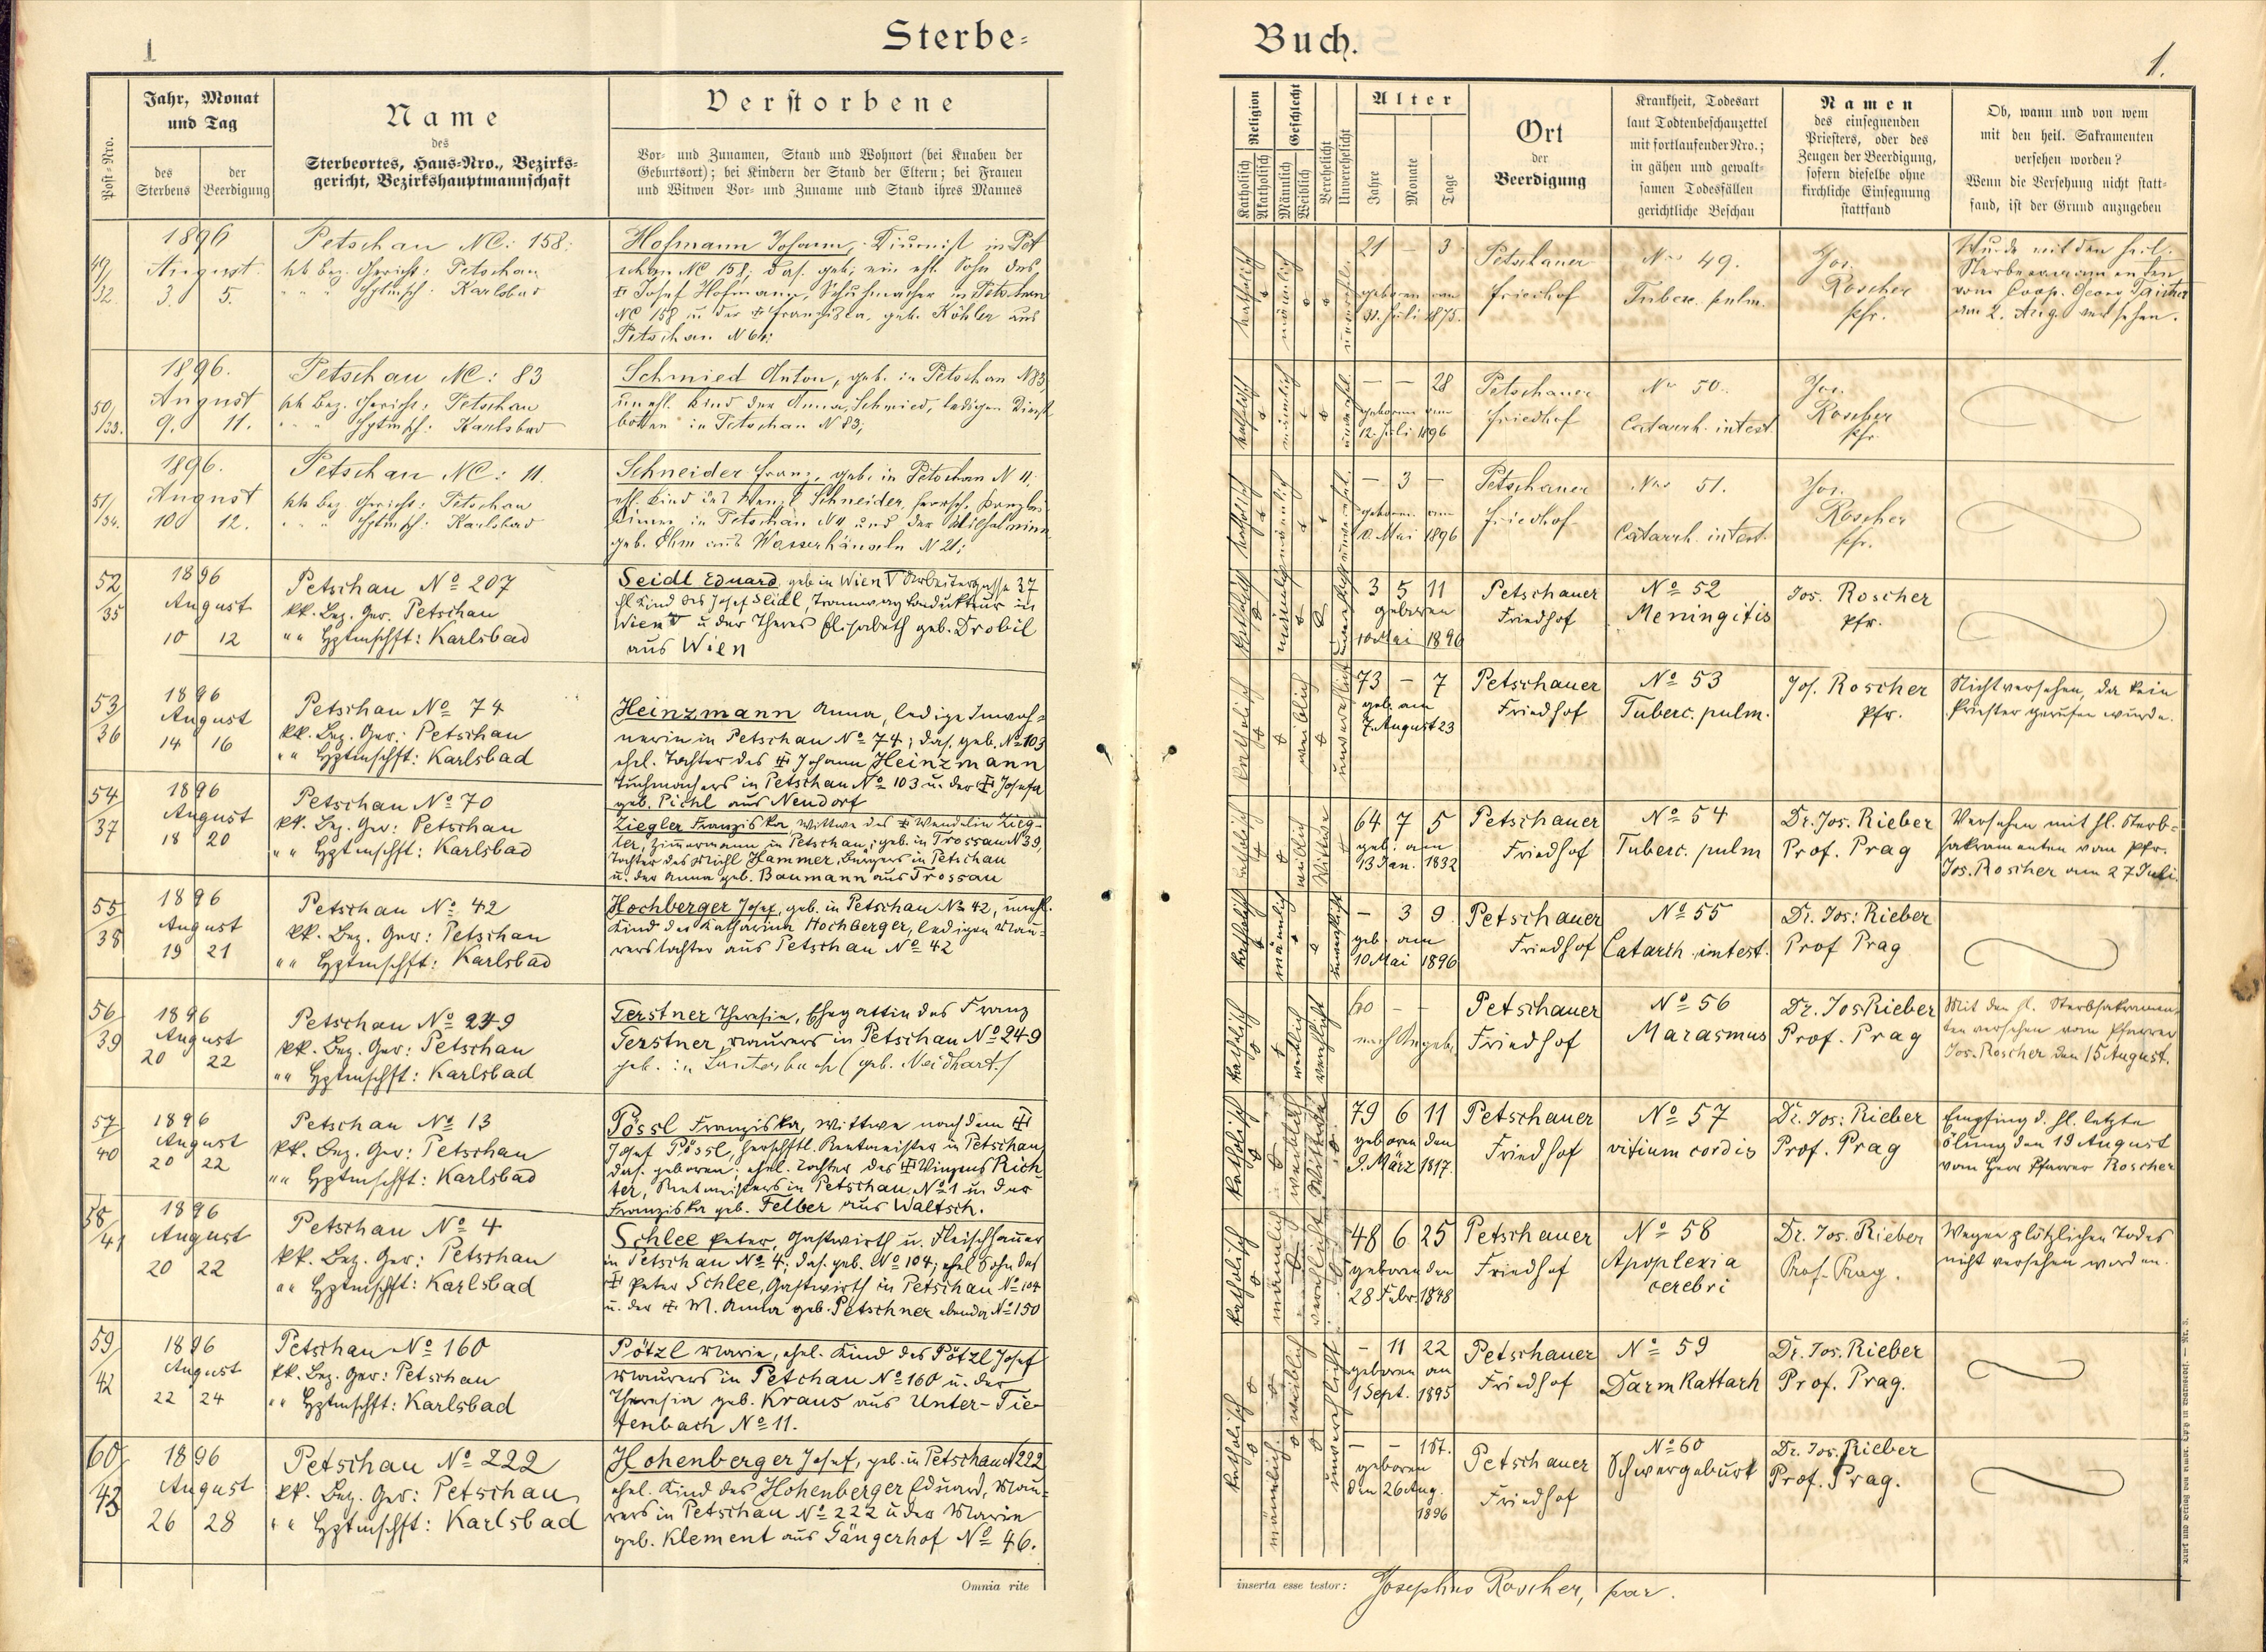 1
Sterbe=
Post-Nro.
Jahr, Monat
und Tag
des
Sterbens
der
Beerdigung
Name
des
Sterbeortes, Haus-Nro., Bezirks-
gericht, Bezirkshauptmannschaft
Verstorbene
Vor- und Zunamen, Stand und Wohnort (bei Knaben der
Geburtsort); bei Kindern der Stand der Eltern; bei Frauen
und Witwen Vor- und Zuname und Stand ihres Mannes
49/
32.
1896
August
3. 5.
Petschau NC: 158:
kk bez. Gericht: Petschau
" " " Hptmsch: Karlsbad
Hofmann Johann, Diurnist in Pet
schau NC 158; das. geb; ein ehl. Sohn des
Josef Hofmann, Schuhmacher in Petschau
NC 158 u der Franziska, geb. Köhler aus
Petschau N 64;
50/
/33.
1896.
August
9. 11.
Petschau NC: 83
kk Bez. Gericht: Petschau
" " " Hptmsch: Karlsbad
Schmied Anton, geb. in Petschau N83
unehl. Kind der Anna Schmied, ledigen Dienst
boten in Petschau N 83;
51/
/34.
1896.
August
10 12.
Petschau NC: 11.
kk Bez Gericht: Petschau
" " " Hptmsch: Karlsbad
Schneider Franz, geb. in Petschau N 11.
ehl. Kind des Wenzl Schneider, herrsch. Kanzlei
diener in Petschau N 11 und der Wilhelmine
geb. Ohm aus Wasserhäuseln N 21;
52/
35
1896
August
10 12
Petschau Nº 207
kk. Bez. Ger. Petschau
" " Hptmschft: Karlsbad
Seidl Eduard, geb in Wien V Arbeitergasse 37
ehl Kind des Josef Seidl, Tramway Kondukteur in
Wien V u der Theres Elisabeth geb. Drobil
aus Wien
53/
36
1896
August
14 16
Petschau Nº 74
kk. Bez. Ger: Petschau
" " Hptmschft: Karlsbad
Heinzmann Anna, ledige Inwoh=
nerin in Petschau Nº 74; das. geb. Nº 103
ehel. Tochter des Johann Heinzmann
Tuchmachers in Petschau Nº 103 u. der Josefa
geb. Pichl aus Neudorf
54/
37
1896
August
18 20
Petschau Nº 70
kk. Bez. Ger: Petschau
" " Hptmschft: Karlsbad
Ziegler Franziska, Wittwe des Wendelin Zieg-
ler, Zimmermann in Petschau, geb. in Trossau N39,
Tochter des Michl Hammer, Bürgers in Petschau
u. der Anna geb. Baumann aus Trossau
55/
38
1896
August
19 21
Petschau Nº 42
kk. Bez. Ger: Petschau
" " Hptmschft: Karlsbad
Hochberger Josef, geb. in Petschau Nº 42, unehl.
Kind der Katharina Hochberger, ledigen Mau=
rerstochter aus Petschau Nº 42
56/
39
1896
August
20 22
Petschau Nº 249
kk. Bez. Ger: Petschau
" " Hptmschft: Karlsbad
Gerstner Theresia, Ehegattin des Franz
Gerstner, Maurers in Petschau Nº 249
geb. in Lauterbach (geb. Neidhart)
57/
40
1896
August
20 22
Petschau Nº 13
kk. Bez. Ger: Petschau
" " Hptmschft: Karlsbad
Pössl Franziska, Wittwe nach dem
Josef Pössl, herschftl. Rentmeister in Petschau
das. geboren; ehel. Tochter des Winzens Rich-
ter, Rentmeisters in Petschau Nº 1 u. der
Franziska geb. Felber aus Waltsch.
58/
/41
1896
August
20 22
Petschau Nº 4
kk. Bez. Ger: Petschau
" " Hptmschft: Karlsbad
Schlee Peter, Gastwirth u. Fleischhauer
in Petschau Nº 4; das. geb. Nº 104; ehel Sohn des
Peter Schlee, Gastwirth in Petschau Nº 104
u. der M. Anna geb. Petschner ebenda Nº 150
59/
42
1896
August
22 24
Petschau Nº 160
kk. Bez. Ger: Petschau
" " Hptmschft: Karlsbad
Pötzl Marie, ehel. Kind des Pötzl Josef
Maurers in Petchau Nº 160 u. der
Theresia geb. Kraus aus Unter-Tie-
fenbach Nº 11.
60/
43
1896
August
26 28
Petschau Nº 222
kk. Bez. Ger: Petschau
" " Hptmschft: Karlsbad
Hohenberger Josef, geb. in Petschau N222
ehel. Kind des Hohenberger Eduard, Mau=
rers in Petschau Nº 222 u der Marie
geb. Klement aus Gängerhof Nº 46.
Omnia rite
Buch.
1.
Religion
Katholisch
Akatholisch
Geschlecht
Männlich
Weiblich
Verehelicht
Unverehelicht
Alter
Jahre
Monate
Tage
Ort
der
Beerdigung
Krankheit, Todesart
laut Todtenbeschauzettel
mit fortlaufender Nro.;
in gähen und gewalt-
samen Todesfällen
gerichtliche Beschau
Namen
des einsegnenden
Priesters, oder des
Zeugen der Beerdigung,
sofern dieselbe ohne
kirchliche Einsegnung
stattfand
Ob, wann und von wem
mit den heil. Sakramenten
versehen worden?
Wenn die Versehung nicht statt-
fand, ist der Grund anzugeben
katholisch
männlich
unverehl.
21 – 3
geboren am
31. Juli 1875.
Petschauer
Friedhof
Nro 49.
Tuberc. pulm.
Jos.
Roscher
Pfr.
Wurde mit den heil.
Sterbesacramenten
vom Coop. Georg
am 2. Aug. versehen.
katholisch
männlich
unverehl.
– – 28
geboren am
12. Juli 1896
Petschauer
Friedhof
Nr 50.
Catarrh. intest.
Jos.
Roscher
Pfr.
katholisch
männlich
unverehel.
– 3 –
geboren am
10. Mai 1896
Petschauer
Friedhof
Nro 51.
Catarrh. intest.
Jos.
Roscher
Pfr.
katholisch
männlich
unverehelicht
3 5 11
geboren
10 Mai 1896
Petschauer
Friedhof
Nº 52
Meningitis
Jos. Roscher
Pfr.
katholisch
weiblich
unverehelicht
73 – 7
geb. am
7. August 23
Petschauer
Friedhof
Nº 53
Tuberc. pulm.
Jos. Roscher
Pfr.
Nicht versehen, da kein
Priester gerufen wurde.
katholisch
weiblich
Wittwe
64 7 5
geb. am
13 Jan. 1832
Petschauer
Friedhof
Nº 54
Tuberc. pulm
Dr. Jos. Rieber
Prof. Prag
Versehen mit hl. Sterb-
sakramenten vom Pfr.
Jos. Roscher am 27 Juli.
katholisch
männlich
unverehelicht
– 3 9
geb. am
10 Mai 1896
Petschauer
Friedhof
Nº 55
Catarrh intest.
Dr. Jos: Rieber
Prof Prag
katholisch
weiblich
verehelicht
60 – –
nach Angab.
Petschauer
Friedhof
Nº 56
Marasmus
Dr. Jos Rieber
Prof. Prag
Mit den hl. Sterbsakramen-
ten versehen vom Pfarrer
Jos. Roscher den 15 August.
katholisch
weiblich
Wittwe
79 6 11
geboren den
9. März 1817.
Petschauer
Friedhof
Nº 57
vitium cordis
Dr. Jos: Rieber
Prof. Prag
Empfing d. hl. letzte
Ölung den 19 August
vom Herr Pfarrer Roscher
katholisch
männlich
verehelicht
48 6 25
geboren den
28 Febr. 1848
Petschauer
Friedhof
Nº 58
Apoplexia
cerebri
Dr. Jos. Rieber
Prof. Prag.
Wegen plötzlichen Todes
nicht versehen worden.
katholisch
weiblich
unverehelicht
– 11 22
geboren am
1 Sept. 1895
Petschauer
Friedhof
Nº 59
Darmkattarh
Dr. Jos. Rieber
Prof. Prag.
katholisch
männlich
– – 1 St.
geboren
den 26 Aug.
1896
Petschauer
Friedhof
Nº 60
Schwergeburt
Dr. Jos. Rieber
Prof. Prag.
inserta esse testor: Josephus Roscher, par.